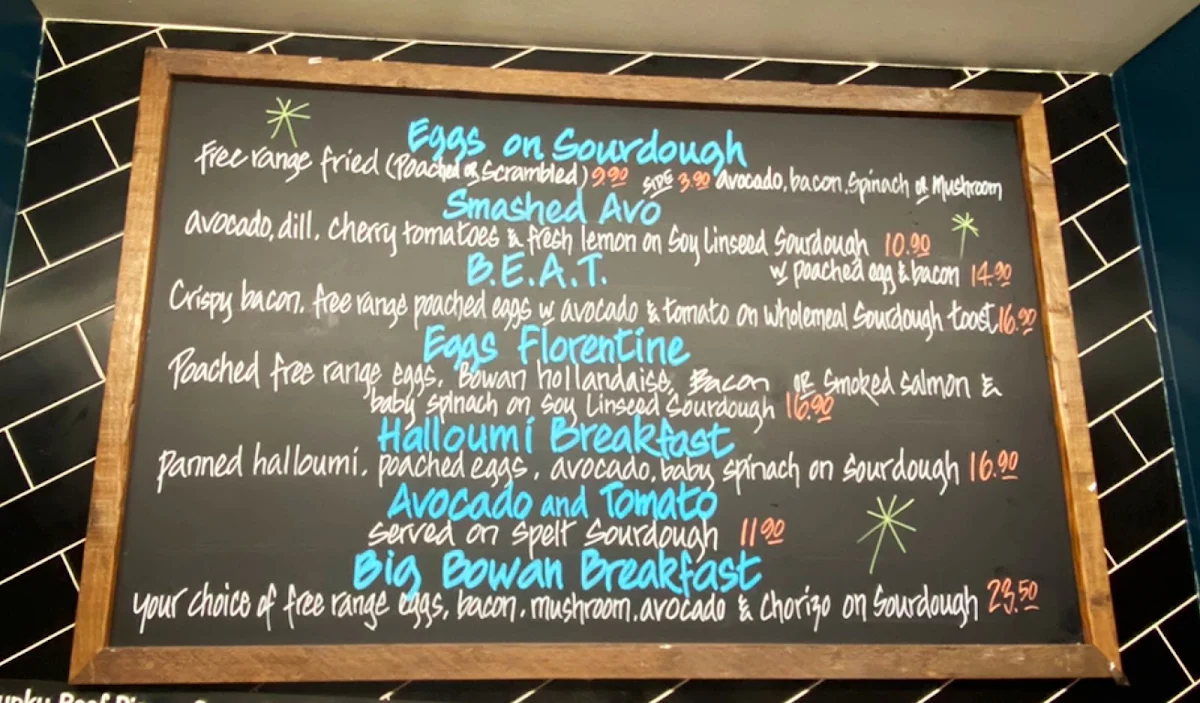 Eggs on Sourdough
Free range fried (Poached or Scrambled) 9.90 SIDE 3.90 avocado, bacon, Spinach or Mushroom
Smashed Avo
avocado, dill, cherry tomatoes & fresh lemon on Soy Linseed Sourdough 10.90
w poached egg & bacon 14.90
B.E.A.T.
Crispy bacon, free range poached eggs w avocado & tomato on wholemeal Sourdough toast 16.90
Eggs Florentine
Poached free range eggs, Bowan hollandaise, Bacon OR Smoked Salmon &
baby spinach on Soy Linseed Sourdough 16.90
Halloumi Breakfast
panned halloumi, poached eggs, avocado, baby spinach on Sourdough 16.90
Avocado and Tomato
served on spelt Sourdough 11.90
Big Bowan Breakfast
your choice of free range eggs, bacon, mushroom, avocado & Chorizo on Sourdough 23.50